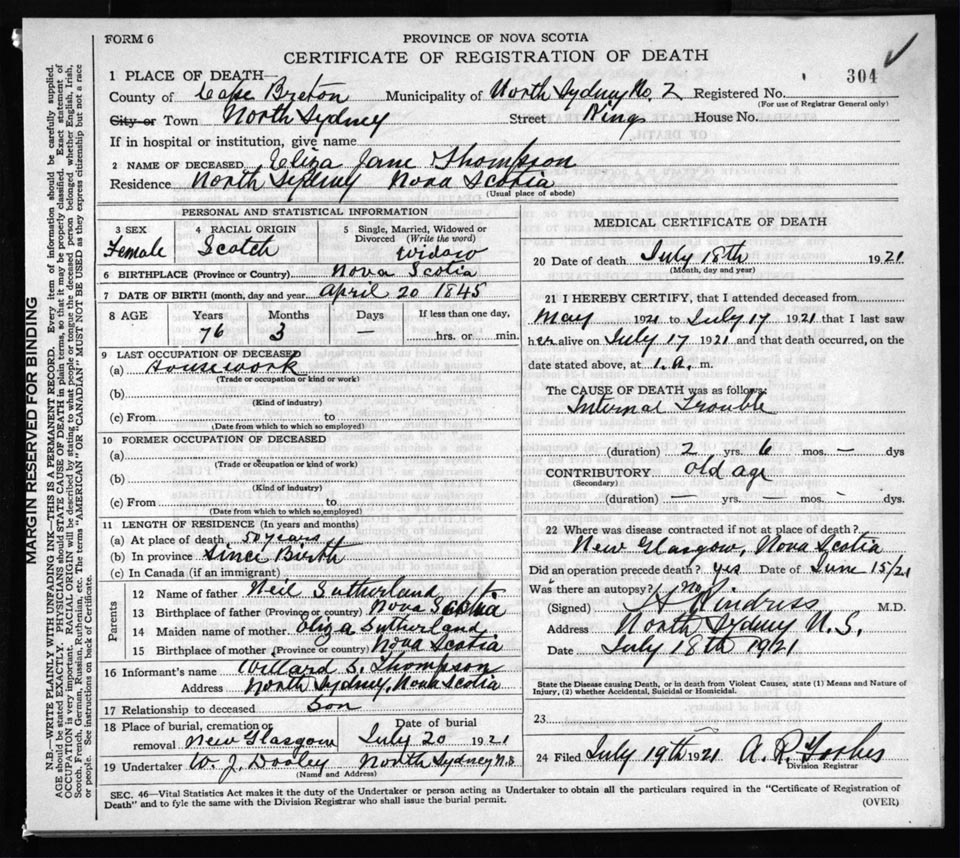 FORM 6
PROVINCE OF NOVA SCOTIA
CERTIFICATE OF REGISTRATION OF DEATH
304
1 PLACE OF DEATH—
County of Cape Breton Municipality of North Sydney No. 2 Registered No.
(For use of Registrar General only)
City or Town North Sydney Street King House No.
If in hospital or institution, give name
2 NAME OF DECEASED Eliza Jane Thompson
Residence North Sydney Nova Scotia
(Usual place of abode)
PERSONAL AND STATISTICAL INFORMATION
3 SEX Female
4 RACIAL ORIGIN Scotch
5 Single, Married, Widowed or Divorced (Write the word) Widow
6 BIRTHPLACE (Province or Country) Nova Scotia
7 DATE OF BIRTH (month, day and year) April 20 1845
8 AGE Years Months Days If less than one day,
76 3 — hrs. or min.
9 LAST OCCUPATION OF DECEASED
(a) Housework
(Trade or occupation or kind of work)
(b)
(Kind of industry)
(c) From to
(Date from which to which so employed)
10 FORMER OCCUPATION OF DECEASED
(a)
(Trade or occupation or kind of work)
(b)
(Kind of industry)
(c) From to
(Date from which to which so employed)
11 LENGTH OF RESIDENCE (In years and months)
(a) At place of death 50 years
(b) In province Since Birth
(c) In Canada (if an immigrant)
Parents
12 Name of father Neil Sutherland
13 Birthplace of father (Province or country) Nova Scotia
14 Maiden name of mother Eliza Sutherland
15 Birthplace of mother (Province or country) Nova Scotia
16 Informant's name Willard S. Thompson
Address North Sydney, Nova Scotia
17 Relationship to deceased Son
18 Place of burial, cremation or removal New Glasgow Date of burial July 20 1921
19 Undertaker W. J. Dooley North Sydney N.S
(Name and Address)
MEDICAL CERTIFICATE OF DEATH
20 Date of death July 18th 1921
(Month, day and year)
21 I HEREBY CERTIFY, that I attended deceased from
May 1921 to July 17 1921 that I last saw
her alive on July 17 1921 and that death occurred, on the
date stated above, at 1.a. m.
The CAUSE OF DEATH was as follows:
Internal Trouble
(duration) 2 yrs. 6 mos. — dys
CONTRIBUTORY old age
(Secondary)
(duration) — yrs. — mos. — dys.
22 Where was disease contracted if not at place of death?
New Glasgow, Nova Scotia
Did an operation precede death? yes Date of June 15/21
Was there an autopsy? no
(Signed) M.D.
Address North Sydney N.S.
Date July 18th 1921
State the Disease causing Death, or in death from Violent Causes, state (1) Means and Nature of
Injury, (2) whether Accidental, Suicidal or Homicidal.
23
24 Filed July 19th 1921 A. R. Forbes
Division Registrar
SEC. 46—Vital Statistics Act makes it the duty of the Undertaker or person acting as Undertaker to obtain all the particulars required in the "Certificate of Registration of
Death" and to fyle the same with the Division Registrar who shall issue the burial permit.
(OVER)
MARGIN RESERVED FOR BINDING
N.B.—WRITE PLAINLY WITH UNFADING INK—THIS IS A PERMANENT RECORD. Every item of information should be carefully supplied.
AGE should be stated EXACTLY. PHYSICIANS should STATE CAUSE OF DEATH in plain terms, so that it may be properly classified. Exact statement of
OCCUPATION is very important. RACIAL ORIGIN will be described by stating to what people or tongue the deceased person belonged whether English, Irish,
Scotch, French, German, Russian, Ruthenian, etc. The terms "AMERICAN" OR "CANADIAN" MUST NOT BE USED as they express citizenship but not a race
or people. See instructions on back of Certificate.